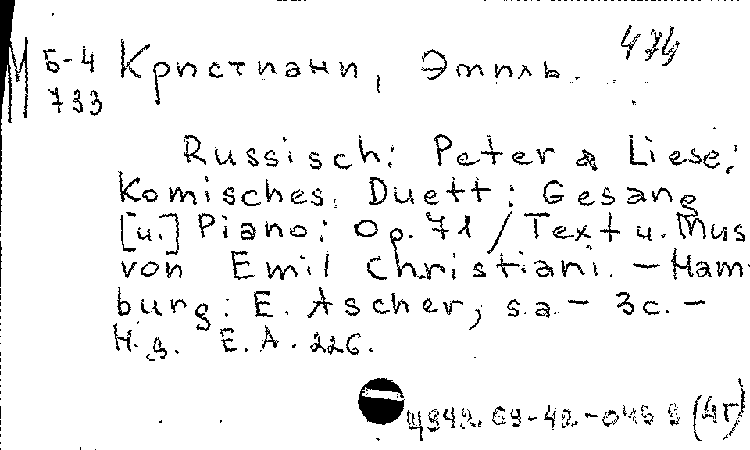 М Б-4 Кристиани, Эмиль. 434
733
Russisch: Peter & Liese;
Komisches Duett: Gesang
[u.] Piano: Op. 71 / Text u. Mus
von Emil Christiani. – Ham-
burg: E. Ascher, s.a – 3с. –
Н.д. E.A. 226.
(4г)